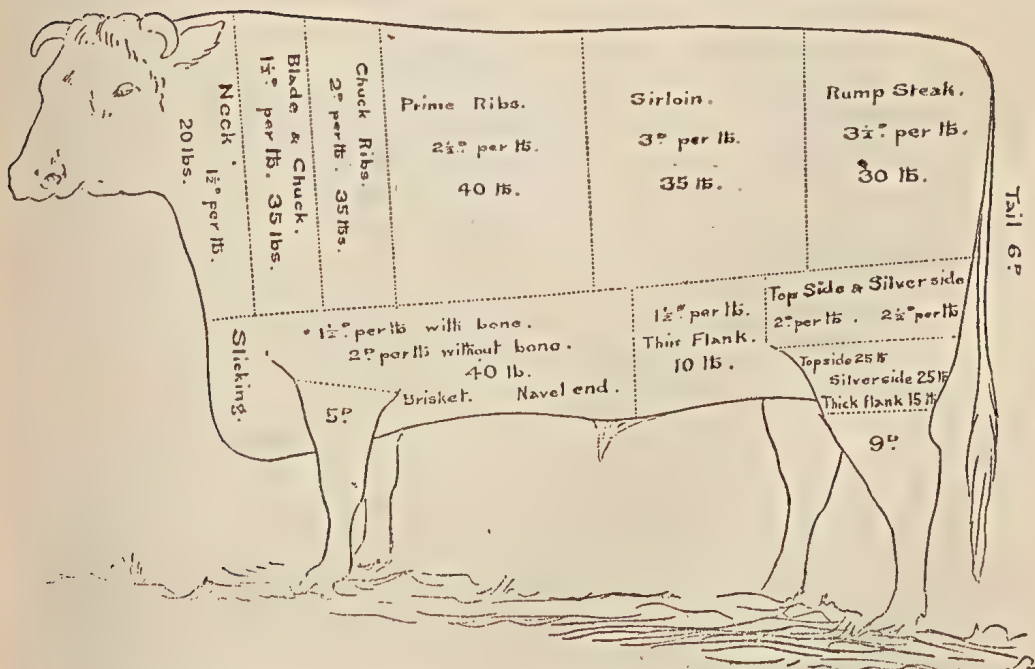 Neck. 1½ᴰ per lb.
20 lbs.
Blade & Chuck.
1½ᴰ per lb. 35 lbs.
Chuck Ribs.
2ᴰ per lb. 35 lbs.
Prime Ribs.
2½ᴰ per lb.
40 lb.
Sirloin.
3ᴰ per lb.
35 lb.
Rump Steak.
3½ᴰ per lb.
30 lb.
Tail 6ᴰ.
Sticking.
1½ᴰ per lb with bone.
2ᴰ per lb without bone.
40 lb.
Brisket. Navel end.
1½ᴰ per lb.
Thin Flank.
10 lb.
Top Side & Silverside
2ᴰ per lb. 2½ᴰ per lb
Topside 25 lb
Silverside 25 lb
Thick flank 15 lb
5ᴰ.
9ᴰ.